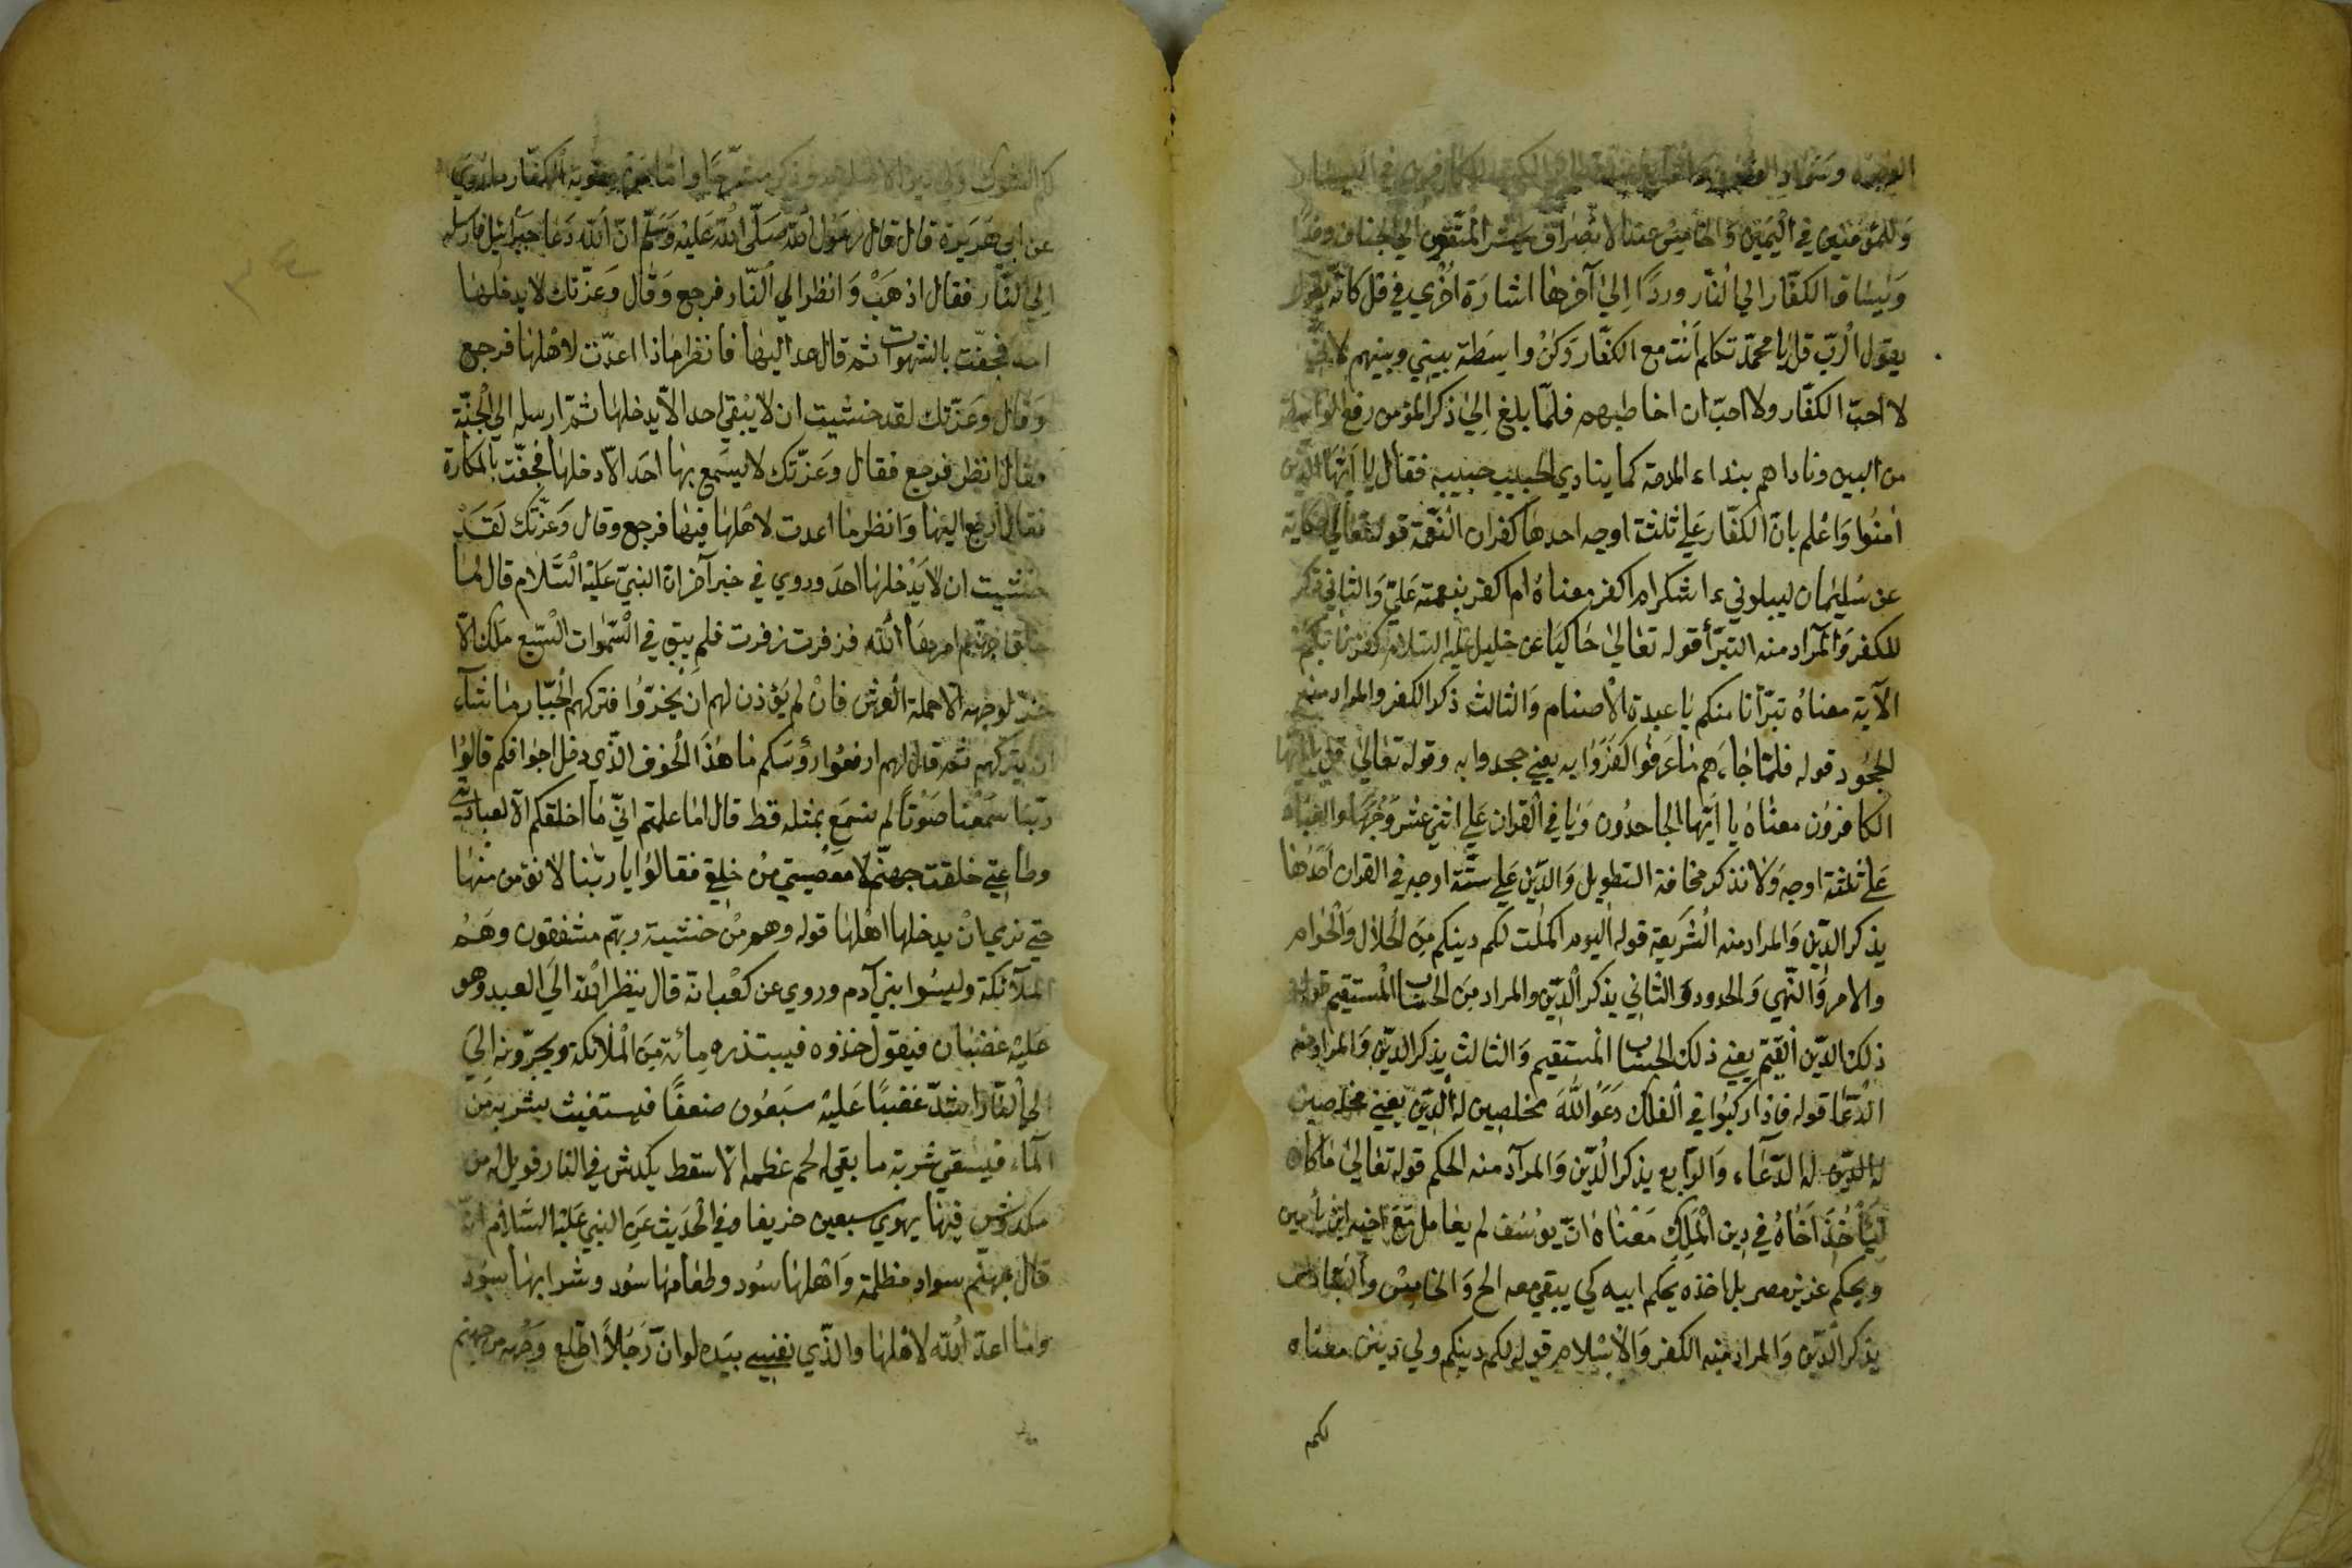 وللمؤمنين في اليمين والخامس عند الانصراف يحشر المتقون الي الجنان وفدا
ويساق الكفار الي النار وردا الي آخرها اشارة اخري في قل كانه يقول
يقول الرب قل يا محمد تكلم انت مع الكفار وكن واسطة بيني وبينهم لاني
لا احب الكفار ولا احب ان اخاطبهم فلما بلغ الي ذكر المؤمن رفع الواسطة
من البين وناداهم بنداء المدحة كما ينادي الحبيب حبيبه فقال يا ايها الذين
امنوا واعلم بان الكفار علي ثلثة اوجه احدها كفران النعمة قوله تعالي حكاية
عن سليمان ليبلوني ءاشكر ام اكفر معناه ام اكفر بنعمته علي والثاني ذكر
الكفر والمراد منه التبرأ قوله تعالي حاكيا عن خليل عليه السلام كفرنا بكم
الآية معناه تبرأنا منكم يا عبدة الاصنام والثالث ذكر الكفر والمراد منه
الجحود قوله فلما جاءهم ما عرفوا كفروا به يعني جحدوا به وقوله تعالي قل يا ايها
الكافرون معناه يا ايها الجاحدون ويا في القران علي اثني عشر وجها والعبادة
علي ثلثة اوجه ولا نذكر مخافة التطويل والدين علي ستة اوجه في القران احدها
يذكر الدين والمراد منه الشريعة قوله اليوم اكملت لكم دينكم من الحلال والحرام
والامر والنهي والحدود والثاني يذكر الدين والمراد من الحساب المستقيم قوله
ذلك الدين القيم يعني ذلك الحساب المستقيم والثالث يذكر الدين والمراد منه
الدعا قوله فاذا ركبوا في الفلك دعوا الله مخلصين له الدين يعني مخلصين
له الدين له الدعاء والرابع يذكر الدين والمراد منه الحكم قوله تعالي ما كان
ليأخذ اخاه في دين الملك معناه ان يوسف لم يعامل مع اخيه ابن يأمين
وبحكم عزيز مصر بل اخذه بحكم ابيه كي يبقي معه الخ والخامس والسادس
يذكر الدين والمراد منه الكفر والاسلام قوله لكم دينكم ولي دين معناه
لكم
عن ابي هريرة قال قال رسول الله صلي الله عليه وسلم ان الله دعا جبرائيل فارسله
الي النار فقال اذهب وانظر الي النار فرجع وقال وعزتك لا يدخلها
احد فحفت بالشهوات ثم قال عد اليها فانظر ماذا اعدت لاهلها فرجع
وقال وعزتك لقد خشيت ان لا يبقي احد الا يدخلها ثم ارسله الي الجنة
فقال انظر فرجع فقال وعزتك لا يسمع بها احد الا دخلها فحفت بالمكارة
فقال ارجع اليها وانظر ما اعدت لاهلها فيها فرجع وقال وعزتك لقد
خشيت ان لا يدخلها احد وروي في خبر آخر ان النبي عليه السلام قال لما
خلق جهنم امرها الله فزفرت زفرت فلم يبق في السموات السبع ملك الا
خر لوجهه الا حملة العرش فان لم يؤذن لهم ان يخروا فتركهم الجبار ما شاء
ان يتركهم ثم قال لهم ارفعوا رؤسكم ما هذا الخوف الذي دخل اجوافكم قالوا
ربنا سمعنا صوتا لم نسمع بمثله قط قال اما علمتم اني ما اخلقكم الا لعبادتي
وطاعتي خلقت جهنم لا معصيتي من خلق فقالوا يا ربنا لا نؤمن منها
حتي نري ان يدخلها اهلها قوله وهم من خشية ربهم مشفقون وهم
الملآئكة وليسوا بني آدم وروي عن كعب انه قال ينظر الله الي العبد وهو
عليه غضبان فيقول خذوه فيبتدره مائة من الملائكة ويجرونه الي
الي النار اشد غضبا عليه سبعون ضعفا فيستغيث بشربة من
المآء فيسقي شربة ما بقي له لحم عظمه الا سقط يكدش في النار فويل له من
مكدوش فيها يهوي سبعين خريفا وفي الحديث عن النبي عليه السلام انه
قال جهنم سواد مظلمة واهلها سود وطعامها سود وشرابها سود
وما اعد الله لاهلها والذي نفسي بيده لو ان رجلا اطلع وجهه من جهنم